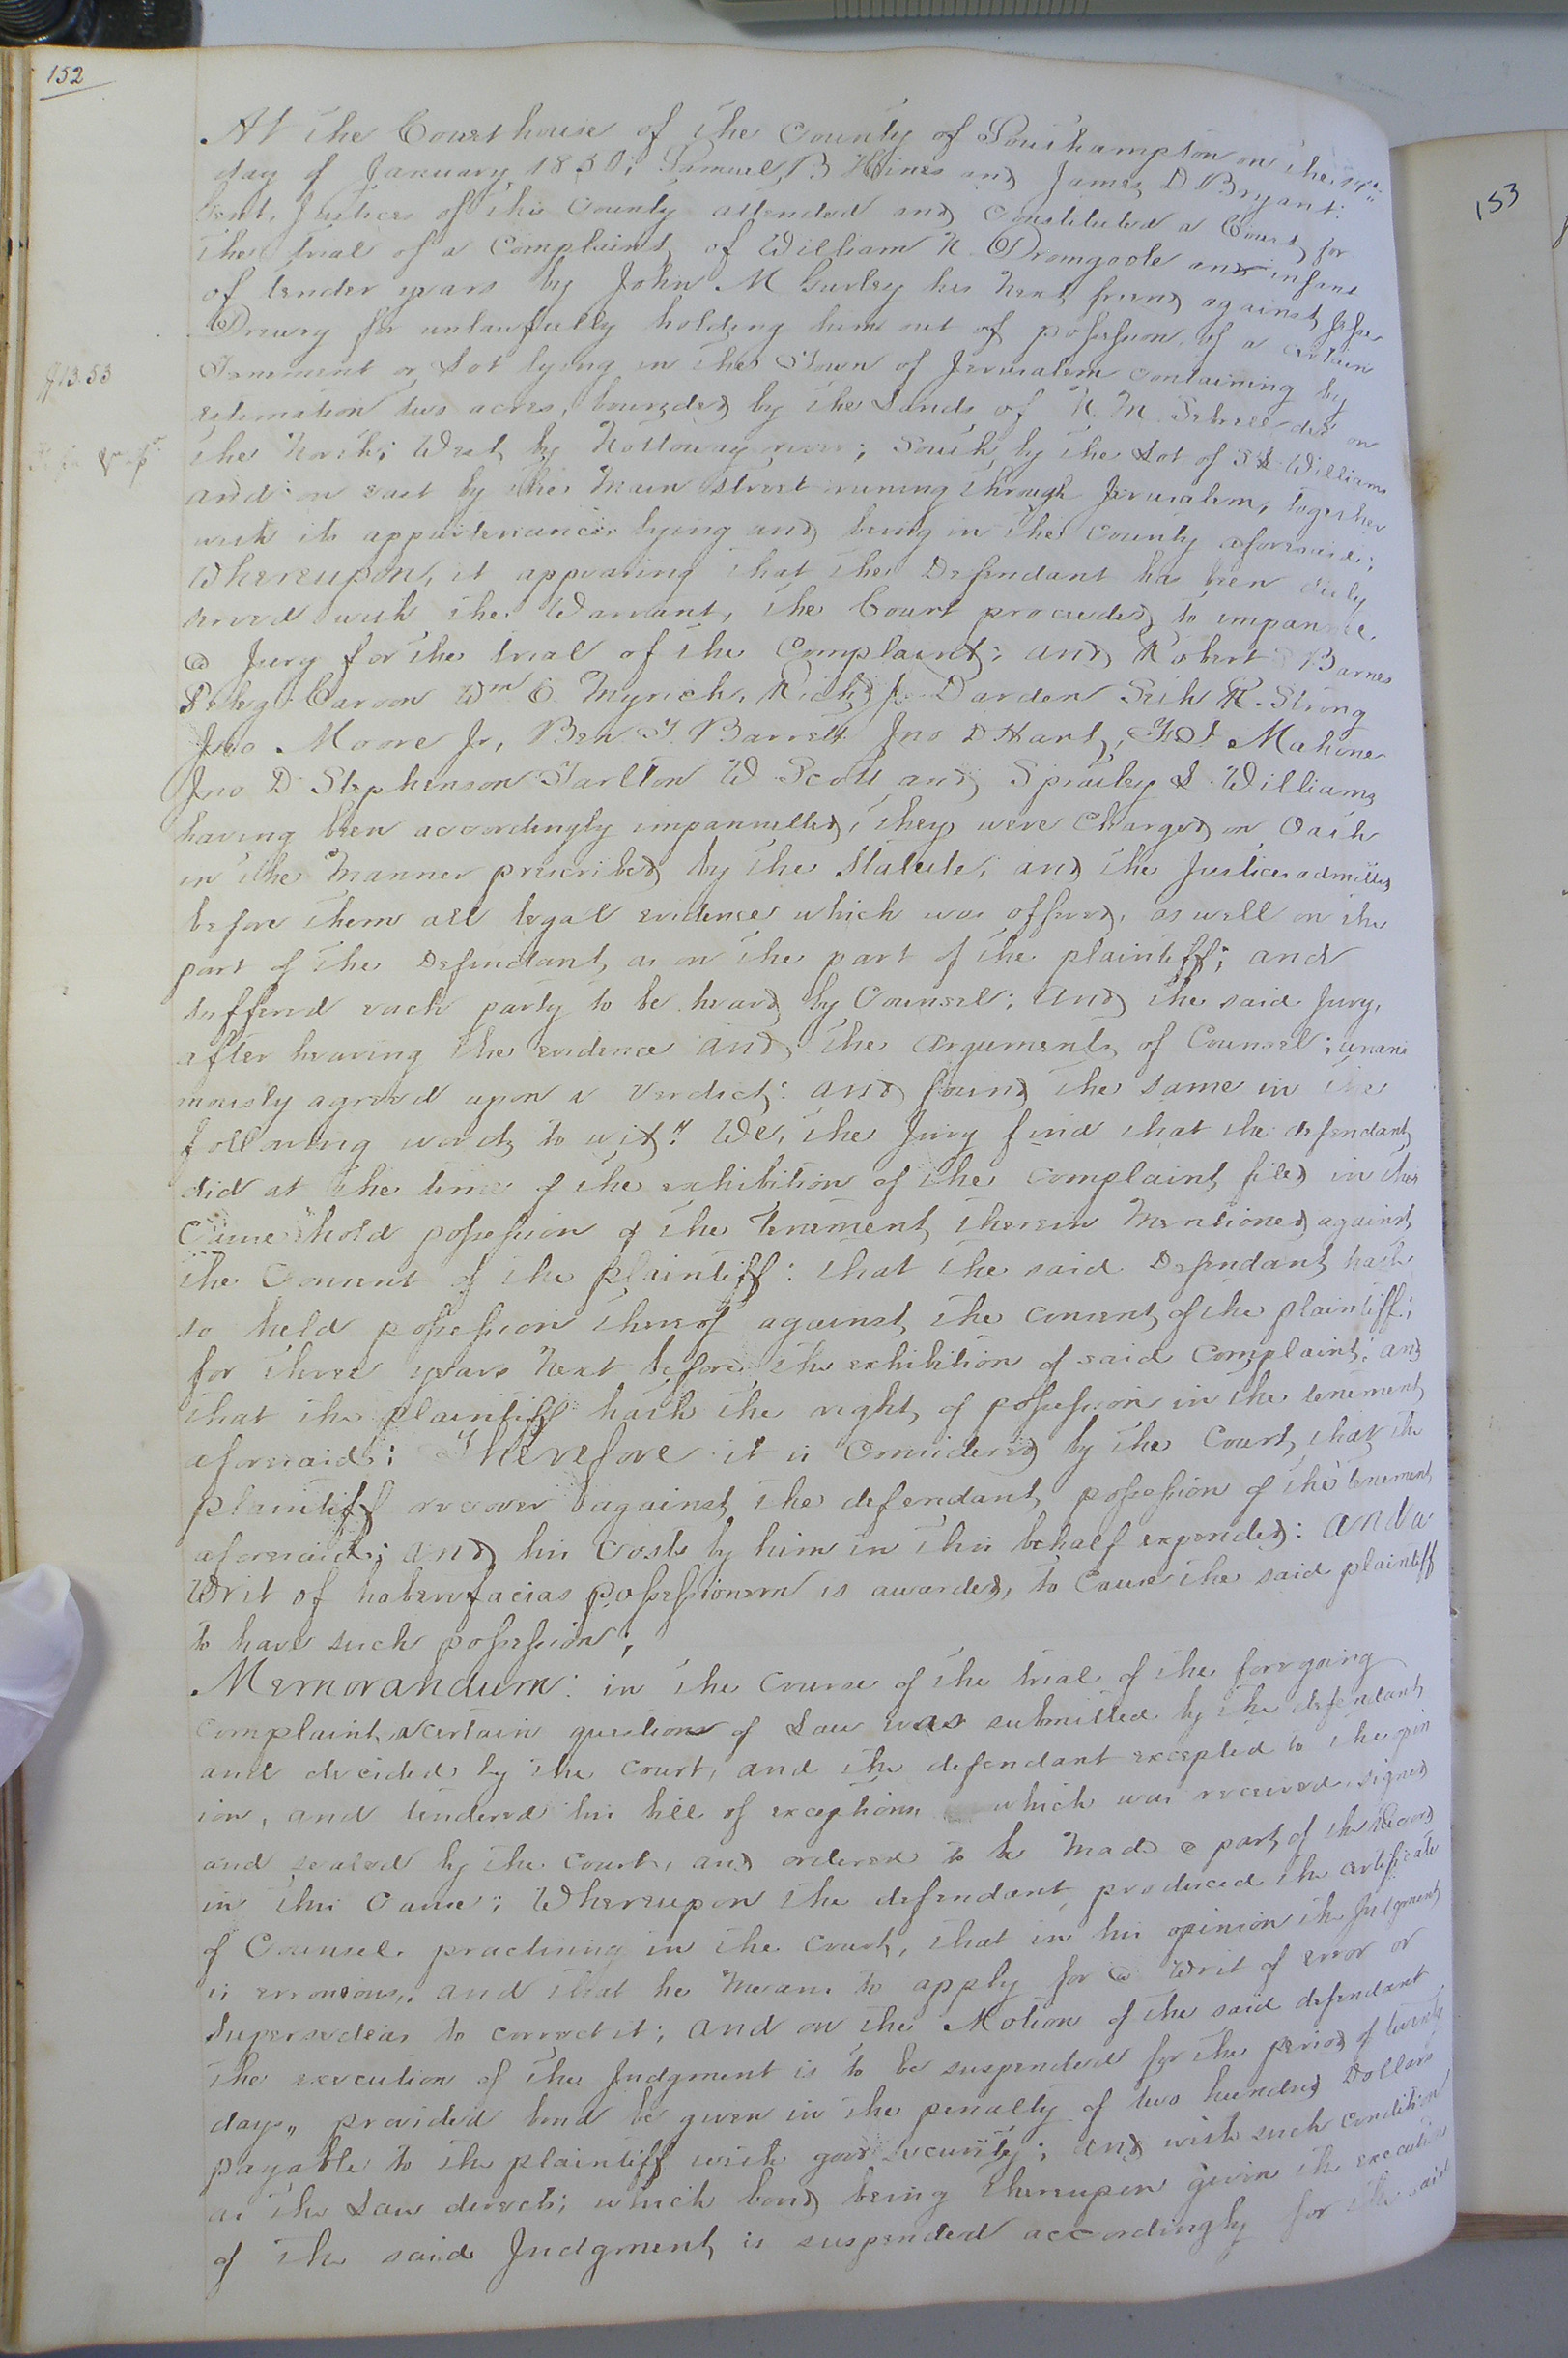 152
At the Courthouse of the County of Southampton on the
day of January 1850; Samuel B Hines and James D Bryant:
Gent. Justices of this County attended and Constituted a Court for
the trial of a Complaint of William N. Dromgoole an infant
of tender years by John M Gurley his next friend against Jesse
Drewry for unlawfully holding him out of possession of a certain
Tenement or Lot lying in the Town of Jerusalem containing by
estimation two acres, bounded by the Lands of N. M. Sebrell decd on
the North; West by Nottoway river; South by the Lot of S L Williams
and on east by the Main Street runing through Jerusalem, together
with its appurtenances lying and being in the County aforesaid;
Whereupon, it appearing that the Defendant has been duly
served with the Warrant, the Court proceeded to impannel
a Jury for the trial of the Complaint: and Robert S Barnes
Peleg Carson Wm. C. Myrick, Richd J. Darden Seth R. Strong
Jno Moore Jr, Ben. T. Barrett Jno D Hart, Mahone
Jno D Stephenson Tarlton W Scott and Spratley L Williams
having been accordingly impannelled, they were Charged on Oath
in the Manner prescribed by the Statute; and the Justices admitted
before them all legal evidence which was offered, as well on the
part of the Defendant, as on the part of the plaintiff; and
suffered each party to be heard by Counsel; and the said Jury,
after hearing the evidence and the arguments of Counsel; unani
mously agreed upon a verdict: and found the same in the
following words to wit" We, the Jury find that the defendant
did at the time of the exhibition of the complaint filed in this
Cause hold possession of the Tenement therein Mentioned against
the Consent of the Plaintiff: that the said Defendant hath
so held possession thereof against the consent of the plaintiff;
for three years next before the exhibition of said Complaint; and
that the plaintiff hath the right of possession in the tenement
aforesaid; Therefore it is Considered by the Court, that the
plaintiff recover against the defendant possession of the tenement
aforesaid; and his Costs by him in this behalf expended: and a
Writ of habere facias possessionem is awarded, to Cause the said plaintiff
to have such possession;
Memorandum: in the Course of the trial of the foregoing
complaint, a certain question of Law was submitted by the defendant
and decided by the Court, and the defendant excepted to the opin
ion, and tendered his bill of exceptions which was received, signed
and sealed by the Court, and ordered to be Made a part of the record
in this Cause; Whereupon the defendant produced the certificate
of Counsel practising in the Court, that in his opinion the Judgment
is erroneous, and that he means to apply for a Writ of error or
Supersedeas to correct it; and on the Motion of the said defendant
the execution of this Judgment is to be suspended for the period of twenty
days,, provided bond be given in the penalty of two hundred Dollars
payable to the plaintiff with good security; and with such condition
as the Law directs; which bond being thereupon given the execution
of the said Judgment, is suspended accordingly for the said
153